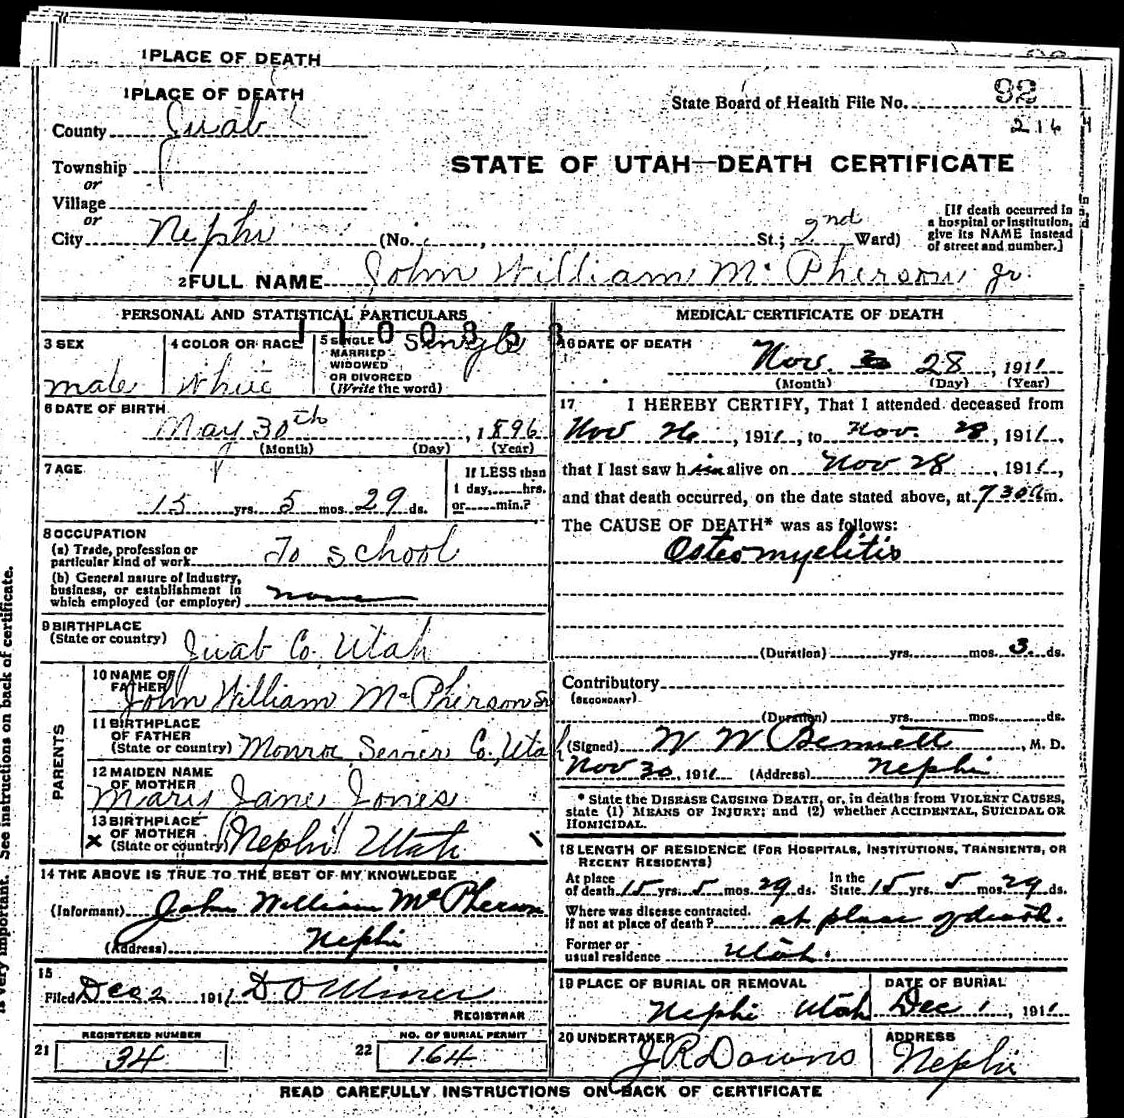 1 PLACE OF DEATH
1 PLACE OF DEATH
State Board of Health File No. 92
216
County Juab
Township
or
Village
or
City Nephi
STATE OF UTAH—DEATH CERTIFICATE
(No. , St.; 2nd Ward)
[If death occurred in a hospital or institution, give its NAME instead of street and number.]
2 FULL NAME John William McPherson Jr.
PERSONAL AND STATISTICAL PARTICULARS
3 SEX
male
4 COLOR OR RACE
White
5 SINGLE
MARRIED
WIDOWED
OR DIVORCED
(Write the word)
Single
6 DATE OF BIRTH
May 30th, 1896
(Month) (Day) (Year)
7 AGE
15 yrs. 5 mos. 29 ds.
If LESS than
1 day, hrs.
or min.?
8 OCCUPATION
(a) Trade, profession or
particular kind of work To school
(b) General nature of industry,
business, or establishment in
which employed (or employer) none
9 BIRTHPLACE
(State or country) Juab Co. Utah
PARENTS
10 NAME OF
FATHER John William McPherson Sr
11 BIRTHPLACE
OF FATHER
(State or country) Monroe Sevier Co., Utah
12 MAIDEN NAME
OF MOTHER
Mary Jane Jones
13 BIRTHPLACE
OF MOTHER
x (State or country) Nephi Utah
14 THE ABOVE IS TRUE TO THE BEST OF MY KNOWLEDGE
(Informant) John William McPherson
(Address) Nephi
15
Filed Dec 2 1911 D O Miner
REGISTRAR
REGISTERED NUMBER
21 34
NO. OF BURIAL PERMIT
22 164
MEDICAL CERTIFICATE OF DEATH
16 DATE OF DEATH
Nov. 28, 1911
(Month) (Day) (Year)
17 I HEREBY CERTIFY, That I attended deceased from
Nov 26, 1911, to Nov. 28, 1911,
that I last saw him alive on Nov 28, 1911,
and that death occurred, on the date stated above, at 7 30 a m.
The CAUSE OF DEATH* was as follows:
Osteomyelitis
(Duration) yrs. mos. 3. ds.
Contributory
(SECONDARY)
(Duration) yrs. mos. ds.
(Signed) W W Bennett, M. D.
Nov 30, 1911 (Address) Nephi
* State the DISEASE CAUSING DEATH, or, in deaths from VIOLENT CAUSES,
state (1) MEANS OF INJURY; and (2) whether ACCIDENTAL, SUICIDAL OR
HOMICIDAL.
18 LENGTH OF RESIDENCE (FOR HOSPITALS, INSTITUTIONS, TRANSIENTS, OR
RECENT RESIDENTS)
At place of death 15 yrs. 5 mos. 29 ds. In the State 15 yrs. 5 mos. 29 ds.
Where was disease contracted.
If not at place of death? at place of death.
Former or
usual residence Utah.
19 PLACE OF BURIAL OR REMOVAL
Nephi Utah
DATE OF BURIAL
Dec 1, 1911
20 UNDERTAKER
J R Downs
ADDRESS
Nephi
READ CAREFULLY INSTRUCTIONS ON BACK OF CERTIFICATE
is very important. See instructions on back of certificate.